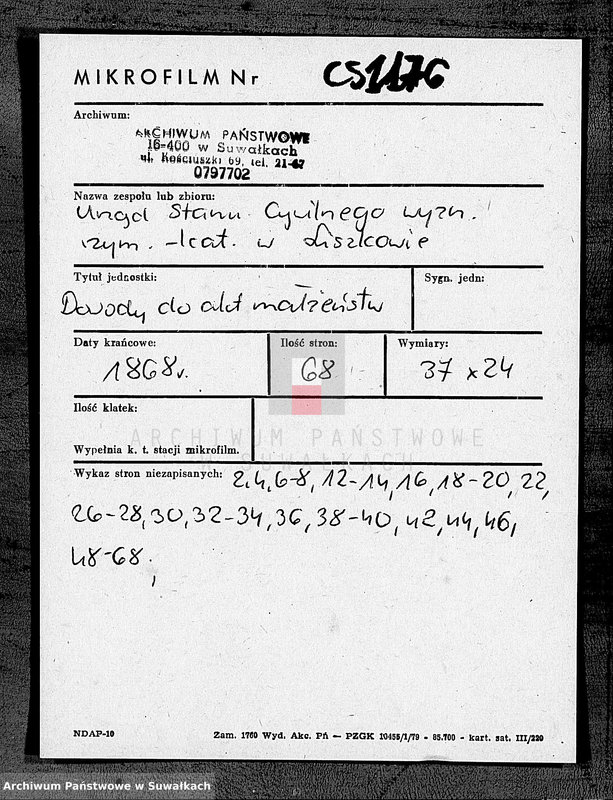 MIKROFILM Nr CS1176
Archiwum:
ARCHIWUM PAŃSTWOWE
16-400 w Suwałkach
ul. Kościuszki 69, tel. 21-67
0797702
Nazwa zespołu lub zbioru:
Urząd Stanu Cywilnego wyzn.
rzym.-kat. w Liszkowie
Tytuł jednostki: Sygn. jedn:
Dowody do akt małżeństw
Daty krańcowe: Ilość stron: Wymiary:
1868r. 68 37 x 24
Ilość klatek:
ARCHIWUM PAŃSTWOWE
W SUWAŁKACH
Wypełnia k. t. stacji mikrofilm.
Wykaz stron niezapisanych: 2,4,6-8, 12-14, 16, 18-20, 22,
26-28, 30, 32-34, 36, 38-40, 42, 44, 46,
48-68.
NDAP-10 Zam. 1760 Wyd. Akc. Pń — PZGK 10455/I/79 - 85.700 - kart. sat. III/220
Archiwum Państwowe w Suwałkach